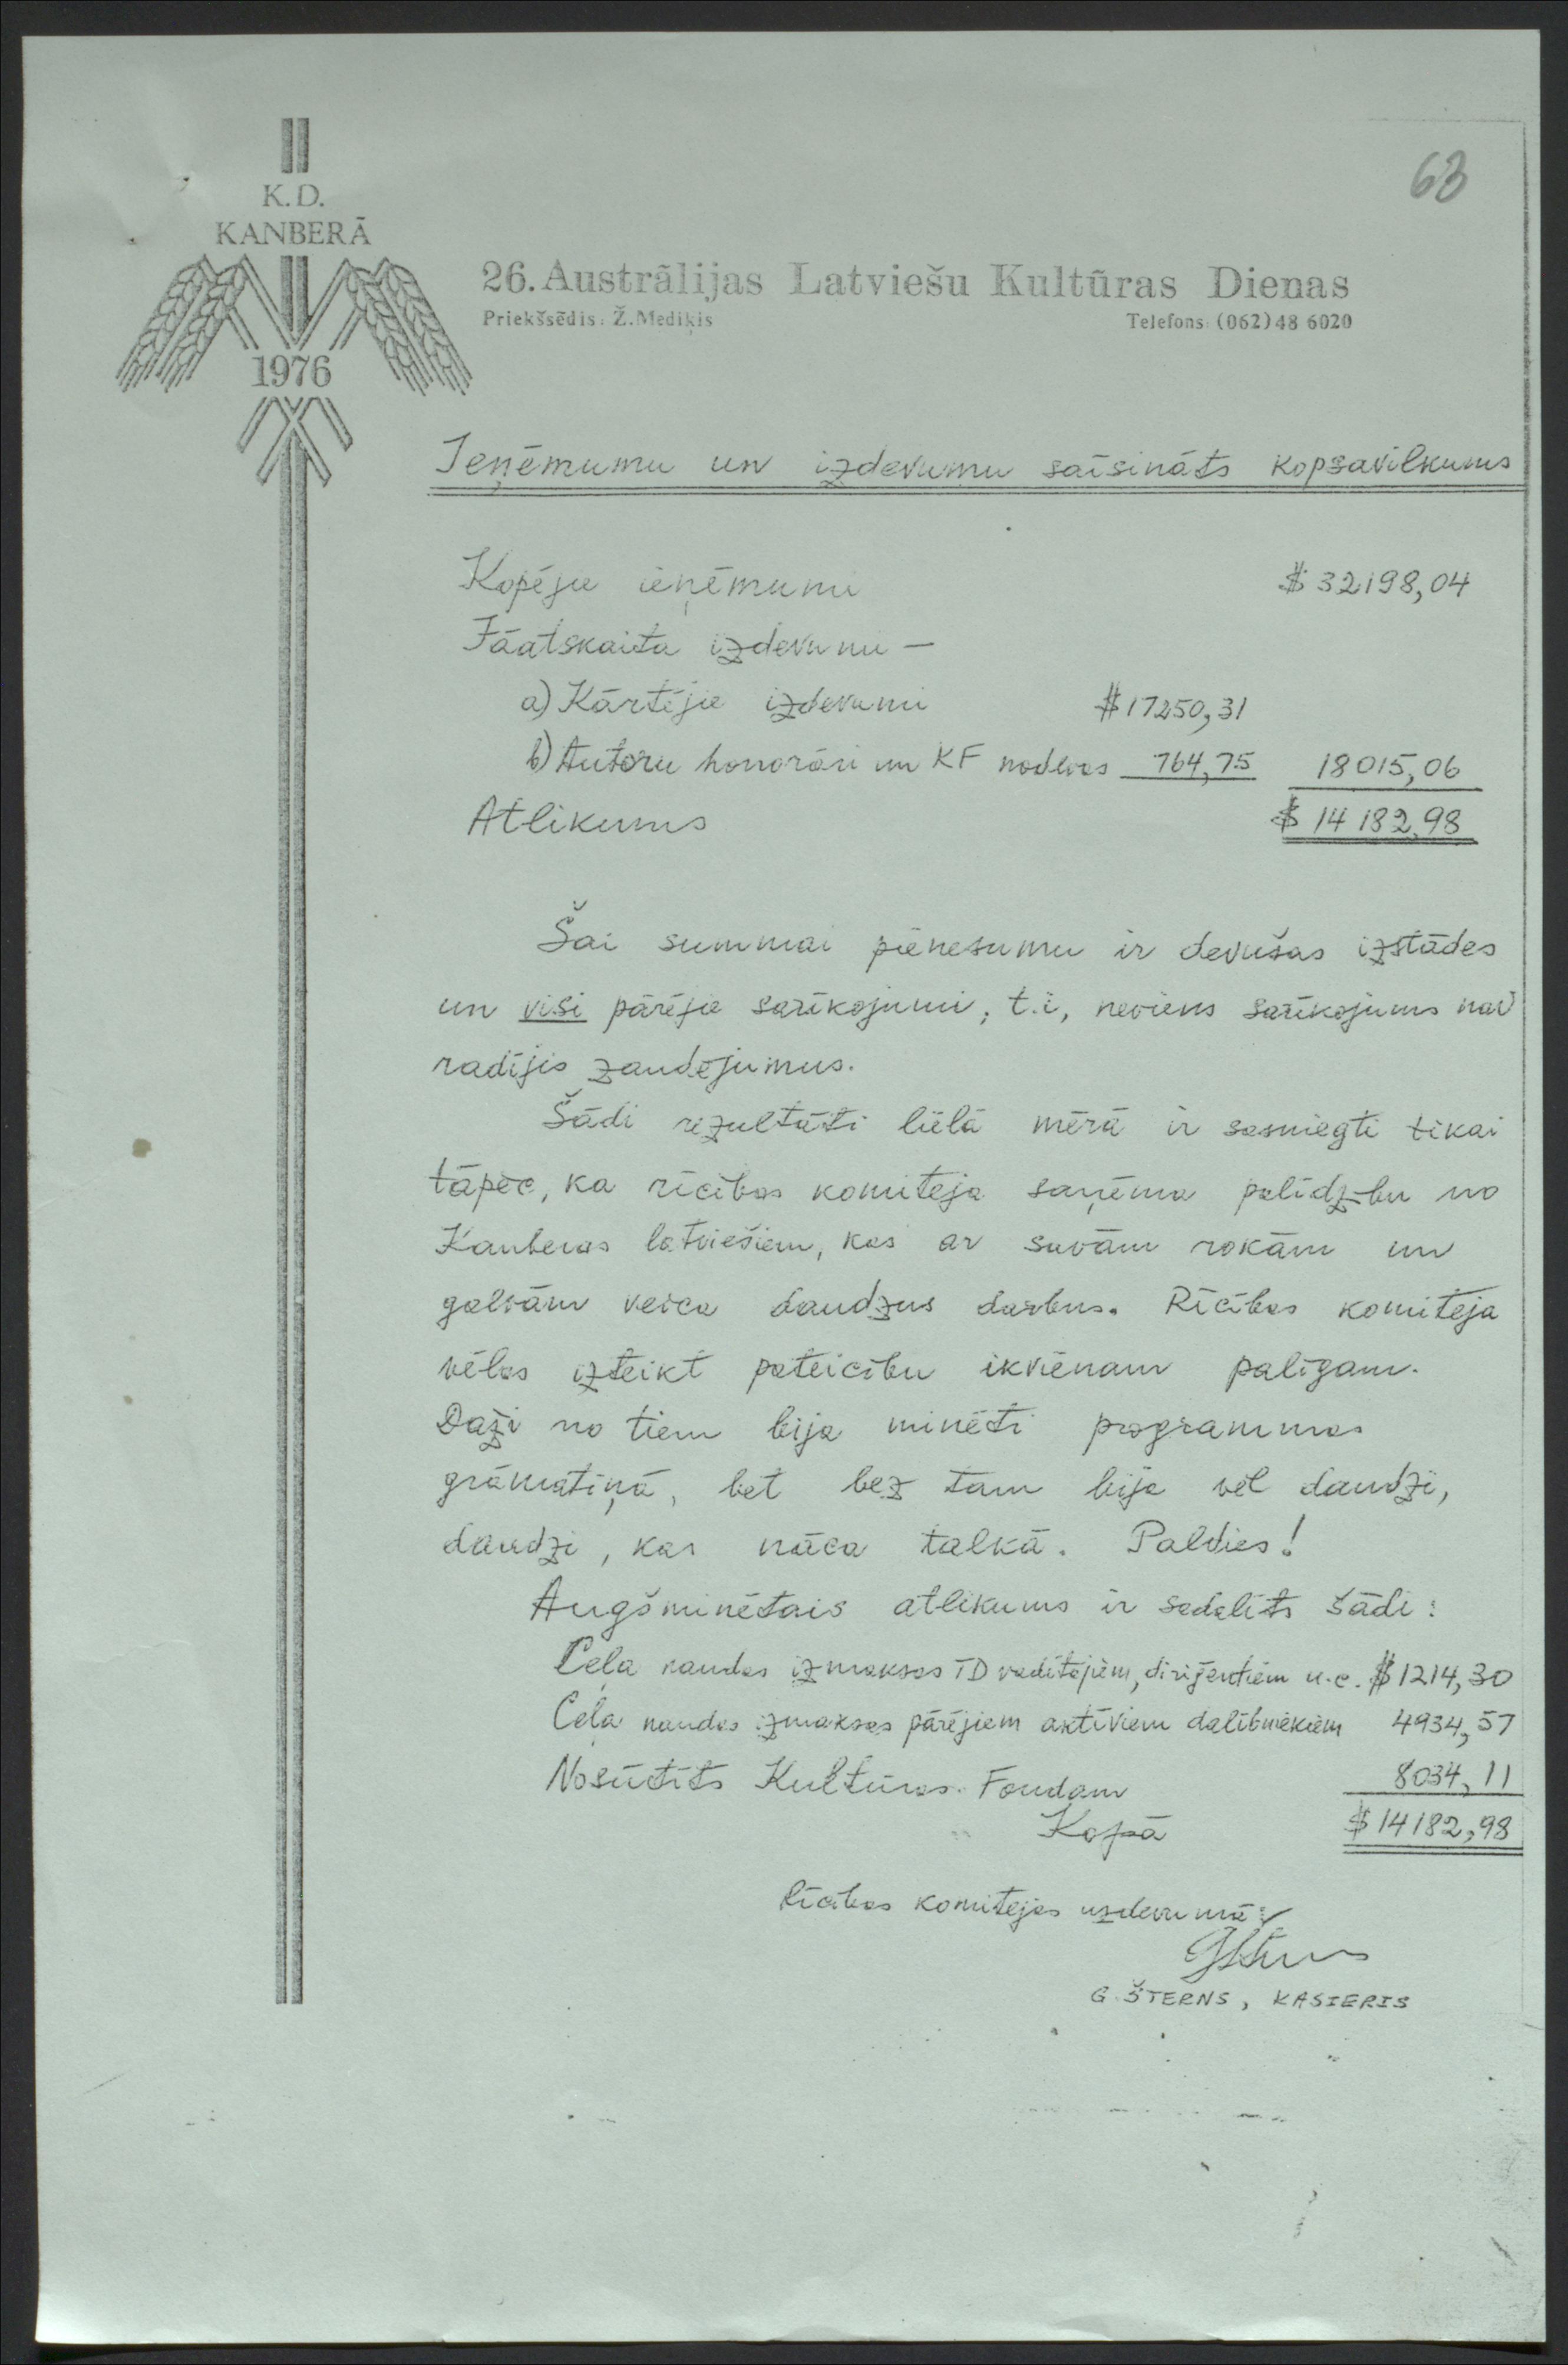 63
K.D.
KANBERĀ
1976
26. Austrālijas Latviešu Kultūras Dienas
Priekšsēdis: Ž. Mediķis Telefons: (062) 48 6020
Ieņēmumu un izdevumu saīsināts kopsavilkums
Kopējie ieņēmumu $ 32198,04
Jāatskaita izdevumi —
a) Kārtējie izdevumi $ 17250,31
b) Autoru honorāri un KF nodevas 764,75 18015,06
Atlikums $ 14182,98
Šai summai pienesumu ir devušas izstādes
un visi pārējie sarīkojumi, t.i, neviens sarīkojums nav
radījis zaudējumus.
Šādi rezultāti lielā mērā ir sasniegti tikai
tāpēc, ka rīcības komiteja saņēma palīdzību no
Kanberas latviešiem, kas ar savām rokām un
galvām veica daudzus darbus. Rīcības komiteja
vēlas izteikt pateicību ikvienam palīgam.
Daži no tiem bija minēti programmas
grāmatiņā, bet bez tam bija vēl daudzi,
daudzi, kas nāca talkā. Paldies!
Augšminētais atlikums ir sadalīts šādi:
Ceļa naudas izmaksas TD vadītājiem, diriģentiem u.c. $ 1214,30
Ceļa naudas izmaksas pārējiem aktīviem dalībniekiem 4934,57
Nosūtīts Kultūras Fondam 8034,11
Kopā $ 14182,98
Rīcības komitejas uzdevumā:
G. ŠTERNS, KASIERIS